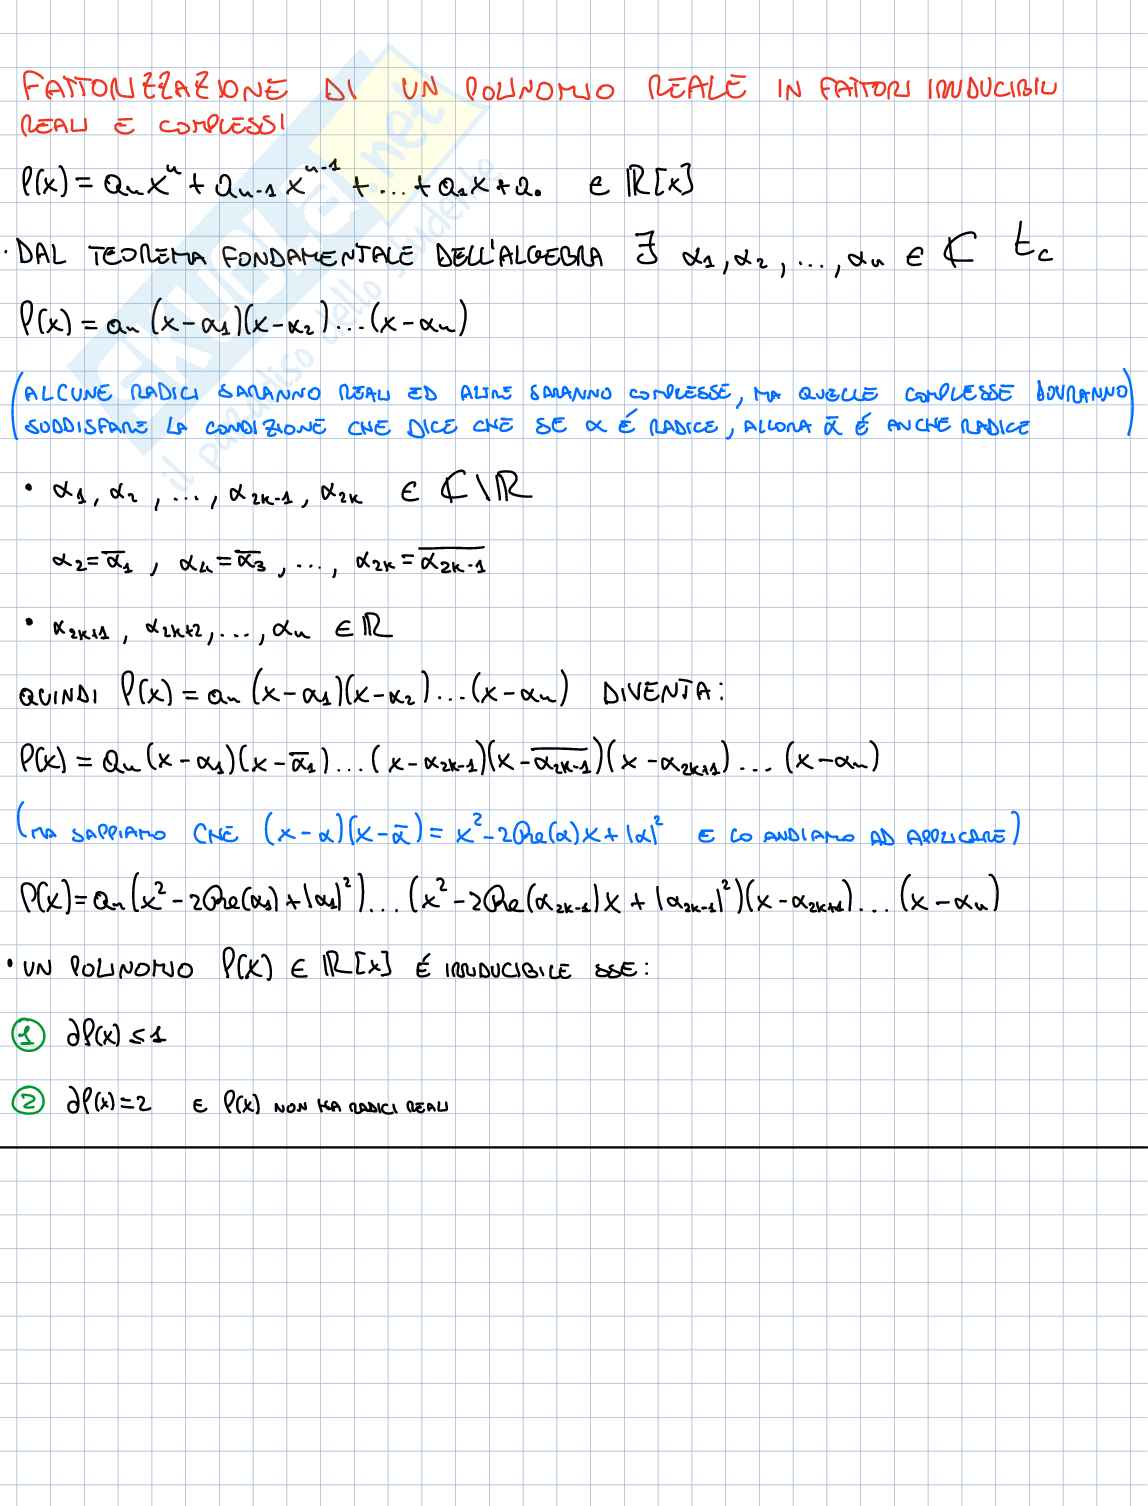 FATTORIZZAZIONE DI UN POLINOMIO REALE IN FATTORI IRRIDUCIBILI
REALI E COMPLESSI
P(x) = aₙxⁿ + aₙ₋₁xⁿ⁻¹ + ... + a₁x + a₀ ∈ ℝ[x]
· DAL TEOREMA FONDAMENTALE DELL'ALGEBRA ∃ α₁, α₂, ..., αₙ ∈ ℂ t.c
P(x) = aₙ (x-α₁)(x-α₂)...(x-αₙ)
(ALCUNE RADICI SARANNO REALI ED ALTRE SARANNO COMPLESSE, MA QUELLE COMPLESSE DOVRANNO
SODDISFARE LA CONDIZIONE CHE DICE CHE SE α É RADICE, ALLORA ᾱ É ANCHE RADICE)
• α₁, α₂, ..., α₂ₖ₋₁, α₂ₖ ∈ ℂ\ℝ
α₂ = ᾱ₁, α₄ = ᾱ₃, ..., α₂ₖ = \overline{α₂ₖ₋₁}
• α₂ₖ₊₁, α₂ₖ₊₂, ..., αₙ ∈ ℝ
QUINDI P(x) = aₙ (x-α₁)(x-α₂)...(x-αₙ) DIVENTA:
P(x) = aₙ (x-α₁)(x-ᾱ₁)...(x-α₂ₖ₋₁)(x-\overline{α₂ₖ₋₁})(x-α₂ₖ₊₁)...(x-αₙ)
(MA SAPPIAMO CHE (x-α)(x-ᾱ) = x²-2Re(α)x+|α|² E LO ANDIAMO AD APPLICARE)
P(x) = aₙ (x²-2Re(α₁)+|α₁|²)...(x²-2Re(α₂ₖ₋₁)x+|α₂ₖ₋₁|²)(x-α₂ₖ₊₁)...(x-αₙ)
• UN POLINOMIO P(x) ∈ ℝ[x] É IRRIDUCIBILE SSE:
① ∂P(x) ≤ 1
② ∂P(x) = 2 E P(x) NON HA RADICI REALI
SKUOLA.net
il paradiso dello studente